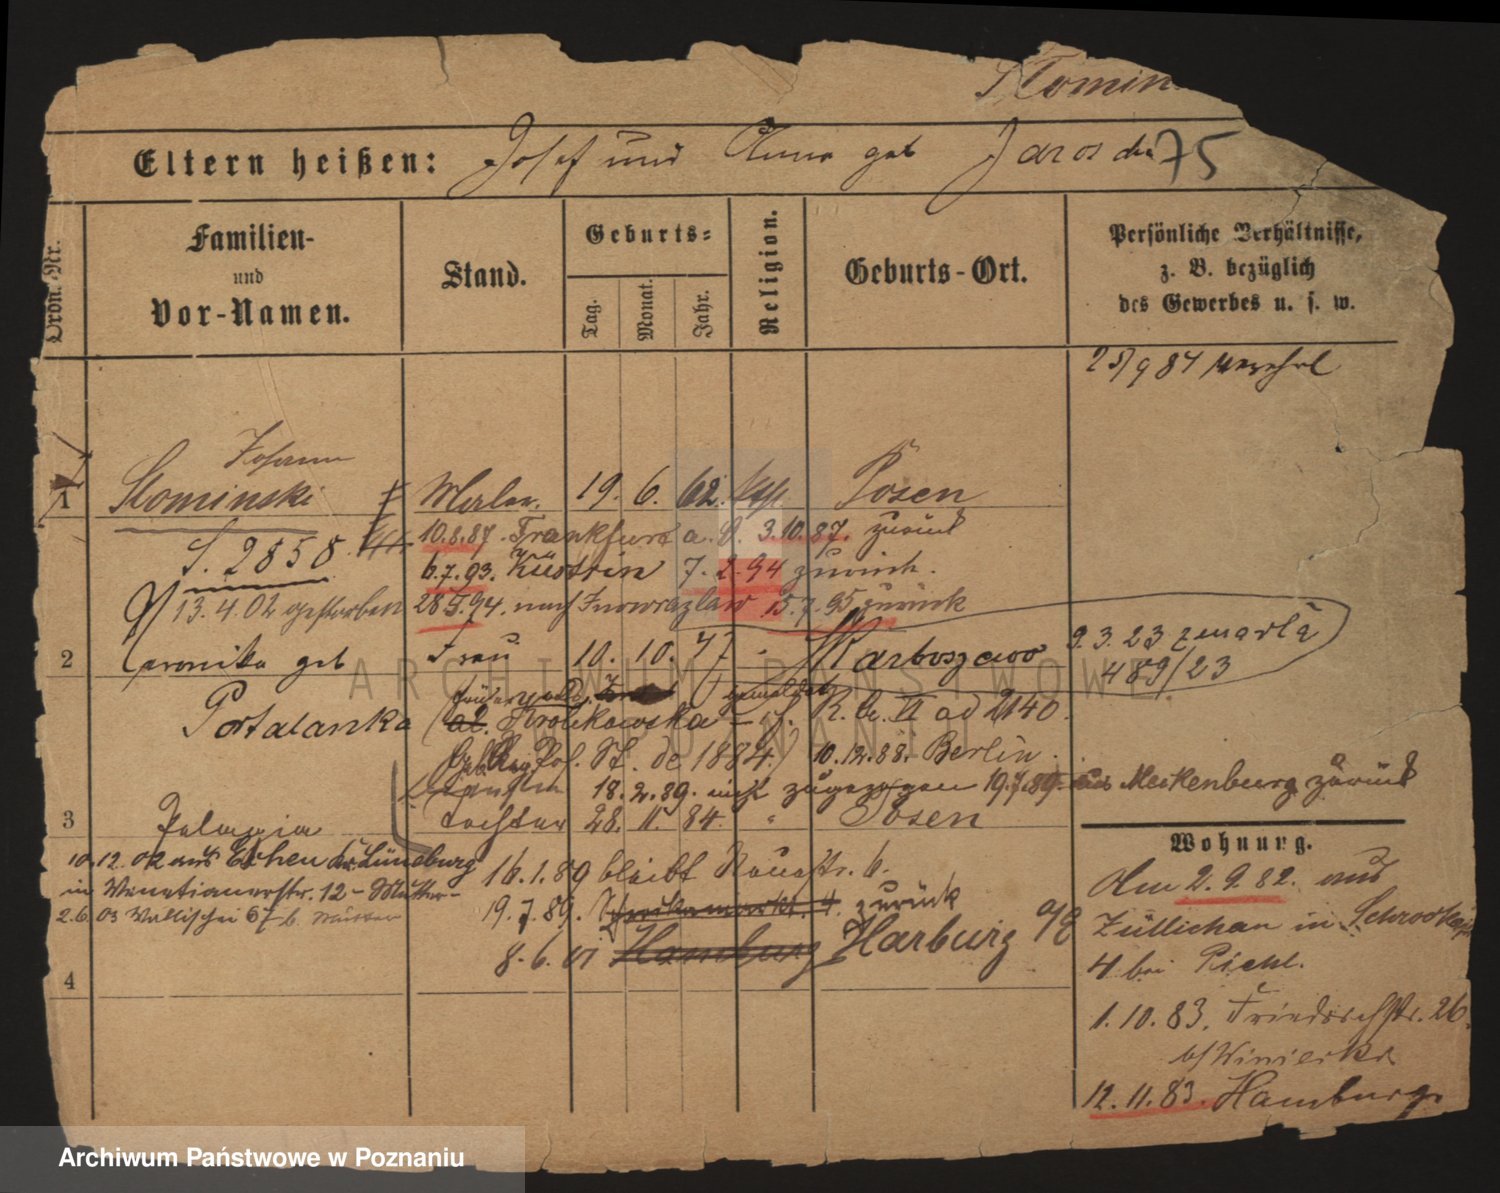 Slomin
Eltern heißen: Josef und Anna geb Jaros 75
Ordn. Nr.
Familien- und Vor-Namen.
Stand.
Geburts-
Tag.
Monat.
Jahr.
Religion.
Geburts-Ort.
Persönliche Verhältnisse, z. B. bezüglich des Gewerbes u. s. w.
25/9 87
Johann
1 Slominski Maler. 19. 6. 62. Posen
S. 2858
10.8.87. Frankfurt a. O. 3.10.87. zurück
6.7.93. Küstrin 7.2.94 zurück.
13.4.02 gestorben
28 5.94. nach Inowrazlaw 15.7.95 zurück
2 geb Frau 10. 10. Karboszewo
9.3.23 zmarła
489/23
Portalanka
Krolikowska R. A. VI ad 2140.
de 1884. 10.12.88. Berlin.
18.2.89. nicht zugezogen 19.7.89. aus Meckenburg zurück
3 Pelagia Tochter 28. 11. 84. " Posen
10.12.02 aus Lüneburg
in Venetianerstr. 12 - Mutter -
2.6.03 Wallischei 67 b. Mutter
16.1.89 bleibt str. 6.
19.7.89. 4. zurück
8.6.01 Hamburg Harburg
4
Wohnung.
Am 2.9.82. aus
Züllichau in
4 bei
1.10.83. Friedrichstr. 26.
b/
12.11.83. Hamburg.
ARCHIWUM PAŃSTWOWE
W POZNANIU
Archiwum Państwowe w Poznaniu